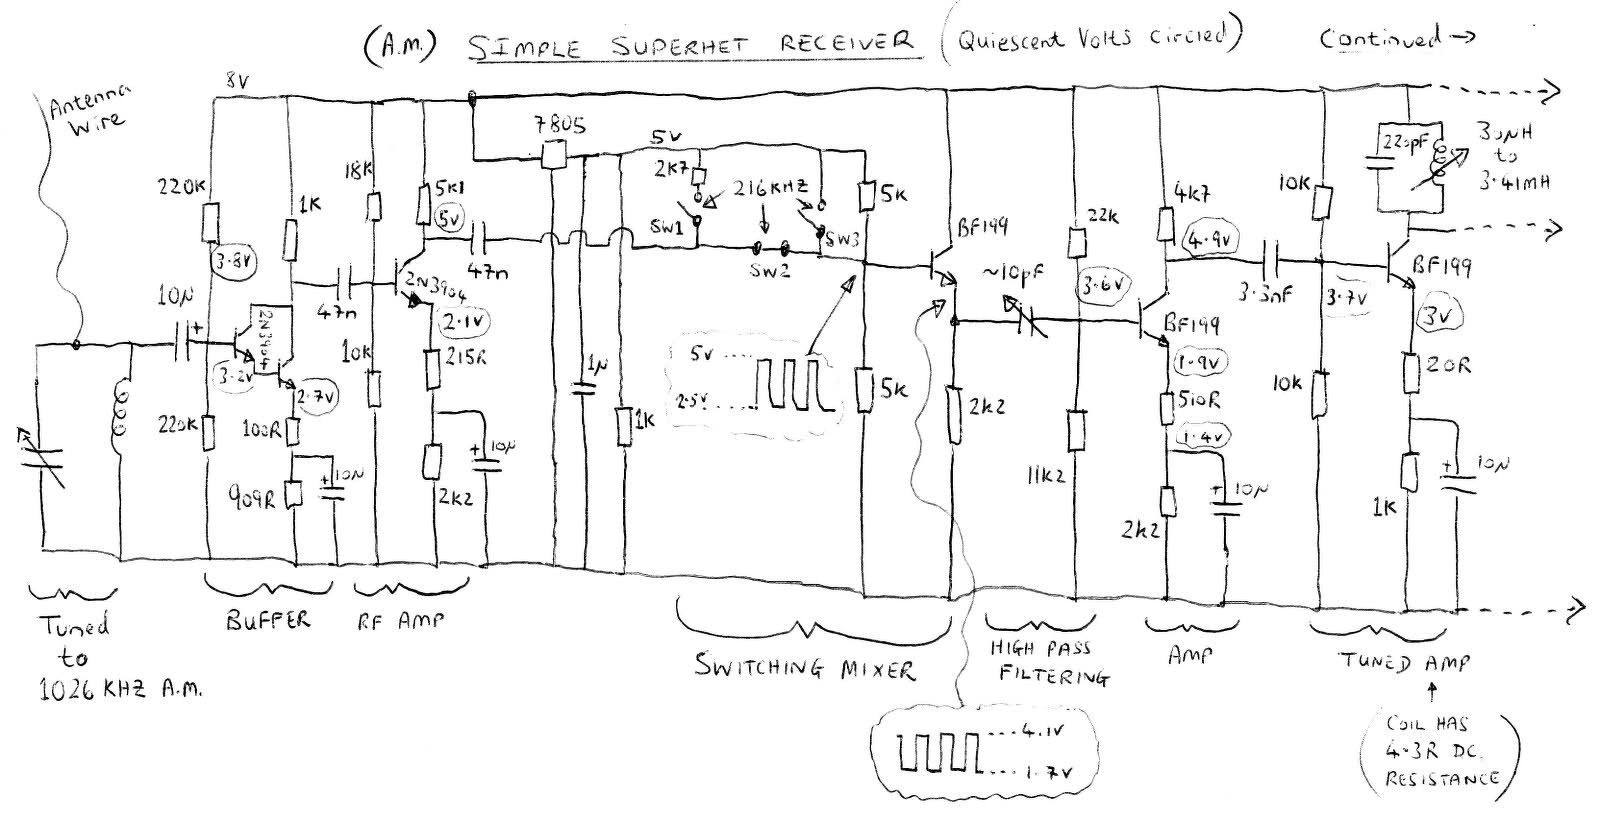 (A.M.) SIMPLE SUPERHET RECEIVER (Quiescent Volts circled) Continued →
Antenna
Wire
8V
220K
3.8V
10µ
+
220K
1K
2N3904
3.2V
2.7V
100R
909R
+ 10µ
47n
18K
10K
5K1
5V
2N3904
2.1V
215R
2K2
+ 10µ
47n
7805
5V
1µ
1K
2K7
216KHZ
SW1
SW2
SW3
5K
5K
5V
2.5V
BF199
2K2
~10pF
22K
3.6V
11K2
4K7
4.9V
BF199
1.9V
510R
1.4V
2K2
+ 10µ
3.3nF
10K
3.7V
10K
220pF
30µH
to
3.41MH
BF199
3V
20R
1K
+ 10µ
Tuned
to
1026 KHZ A.M.
BUFFER
RF AMP
SWITCHING MIXER
HIGH PASS
FILTERING
AMP
TUNED AMP
4.1V
1.7V
(COIL HAS
4.3R DC.
RESISTANCE)